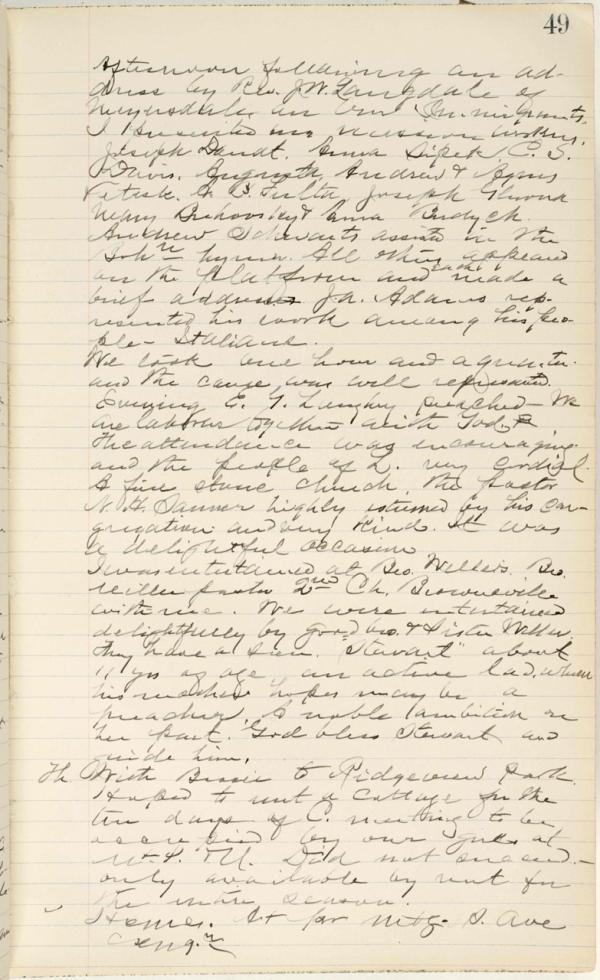 49
Afternoon following an ad-
dress by Rev. J.W. Langdale of
Meyersdale, on Our Immigrants,
I presented our mission workers,
Joseph Dandt. Anna Sipek, C. S.
Davis, Andrew & Agnes
A. B. Fulta, Joseph
Mary & Anna
Andrew Schwarts assisted in the
Boh'n hymn. All others appeared
on the platform and each made a
brief address Jn. Adams rep-
resented his work among his peo-
ple - Italians.
We took one hour and a quarter.
and the cause was well represented.
Evening E. T. preached - We
are labours together with God.
The attendance was encouraging
and the people of L. very cordial.
A fine stone church, the pastor
N. H. Sanner highly estemed by his con-
gregation and very kind. It was
a delightful occasion
I was entertained at Bro. Weller's. Bro.
pastor 2nd Ch. Brownsville
with me. We were entertained
delightfully by good bro. & Sister Weller.
They have a son "Stewart" about
11 yrs of age an active lad, whom
his mother hopes may be a
preacher. A noble ambition on
her part. God bless Stewart and
guide him.
Th. With Bessie to Ridgeview Park.
Hoped to rent a cottage for the
ten days of C. meeting to be
occupied by our girls at
Mt. P. Did not succeed -
only available by rent for
the entire season.
Home. At pr mtg. S. Ave
Cong'n